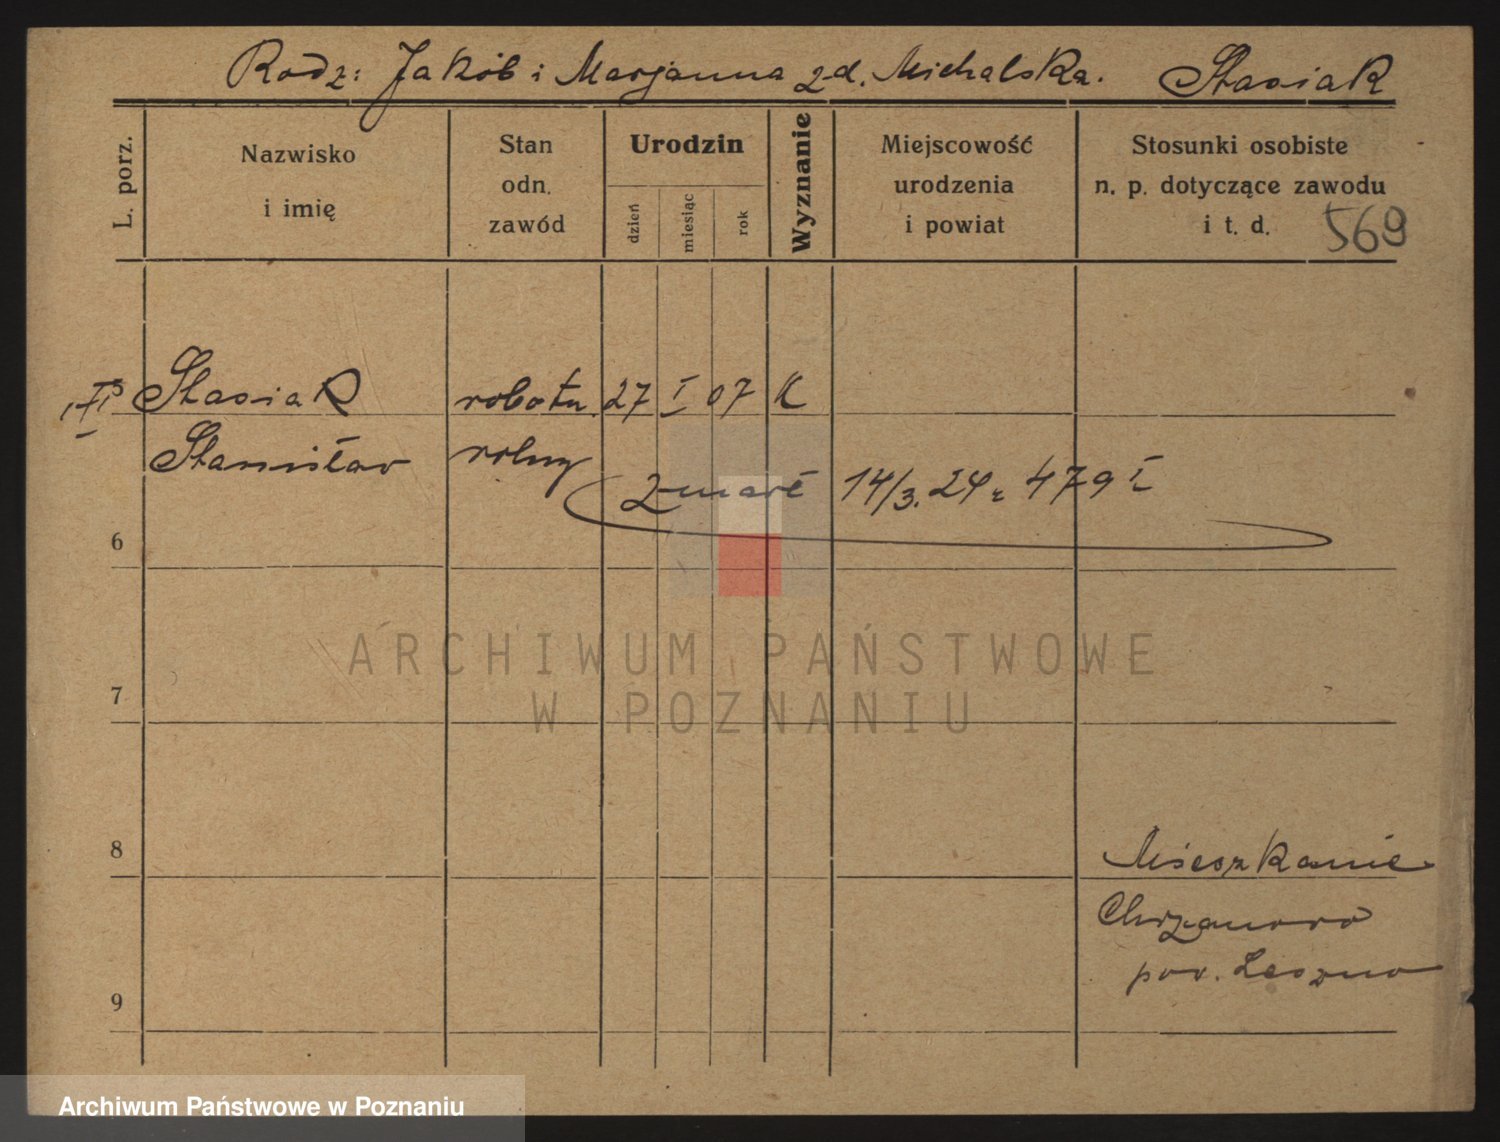 Rodz: Jakób i Marjanna zd. Michalska. Stasiak
L. porz.
Nazwisko
i imię
Stan
odn.
zawód
Urodzin
dzień
miesiąc
rok
Wyznanie
Miejscowość
urodzenia
i powiat
Stosunki osobiste
n. p. dotyczące zawodu
i t. d.
569
5 Stasiak robotn. 27 I 07 K
Stanisław rolny
zmarł 14/3. 24 r 479 I
6
7
8
Mieszkanie
Chrzanowo
pow. Leszno
9
ARCHIWUM PAŃSTWOWE
W POZNANIU
Archiwum Państwowe w Poznaniu